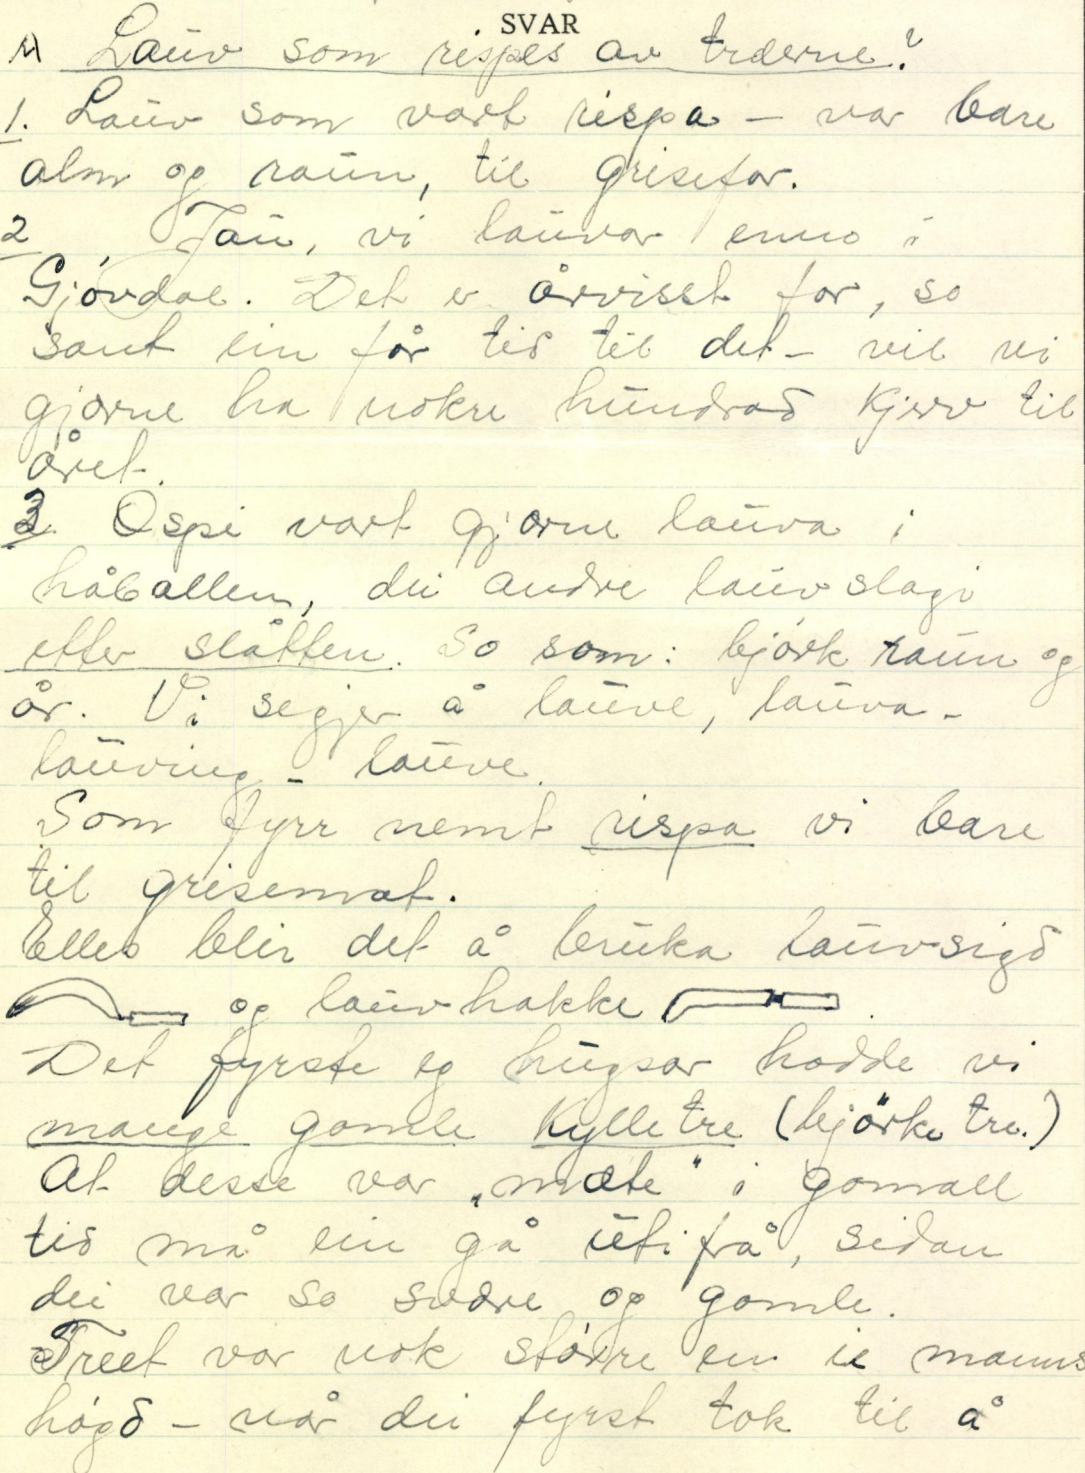 SVAR
1) Lauv som rispes av trærne?
1. Lauv som vart rispa – var bare
alm og raun, til grisefor.
2. Jau, vi lauvar enno i
Gjøvdal. Det er årvisst for, so
sant ein får tid til det – vil vi
gjærne ha nokre hundrad kjerv til
året.
3. Ospi vart gjærne lauva i
håballen, dei andre lauvslagi
etter slåtten. So som: bjørk raun og
år. Vi segjer å lauve, lauva –
lauving – lauve.
Som fyrr nemt rispa vi bare
til grisemat.
Elles blir det å bruka lauvsigd
og lauvhakke.
Det fyrste eg hugsar hadde vi
mange gamle kylletre (björketre.)
At desse var „mæte" i gamall
tid må ein gå utifrå, sidan
dei var so svære og gamle.
Treet var nok større en ie manns
høgd – når dei fyrst tok til å